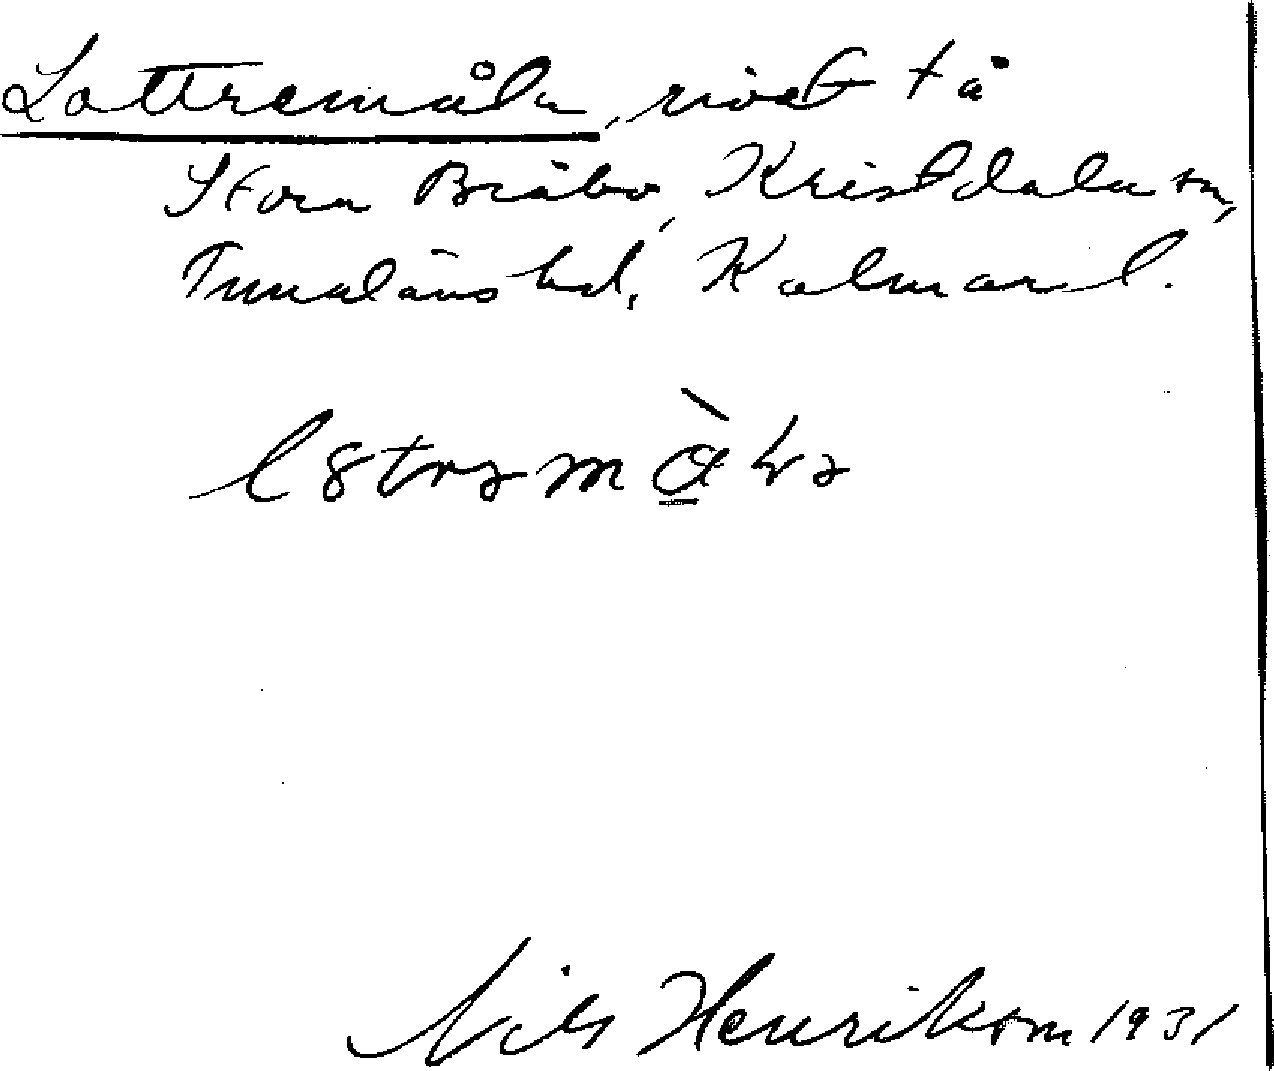 Lottremåla, rivet tå
Stora Bråbo, Kristdala sn,
Tunaläns hd, Kalmar l.
Nils Henrikson 1931